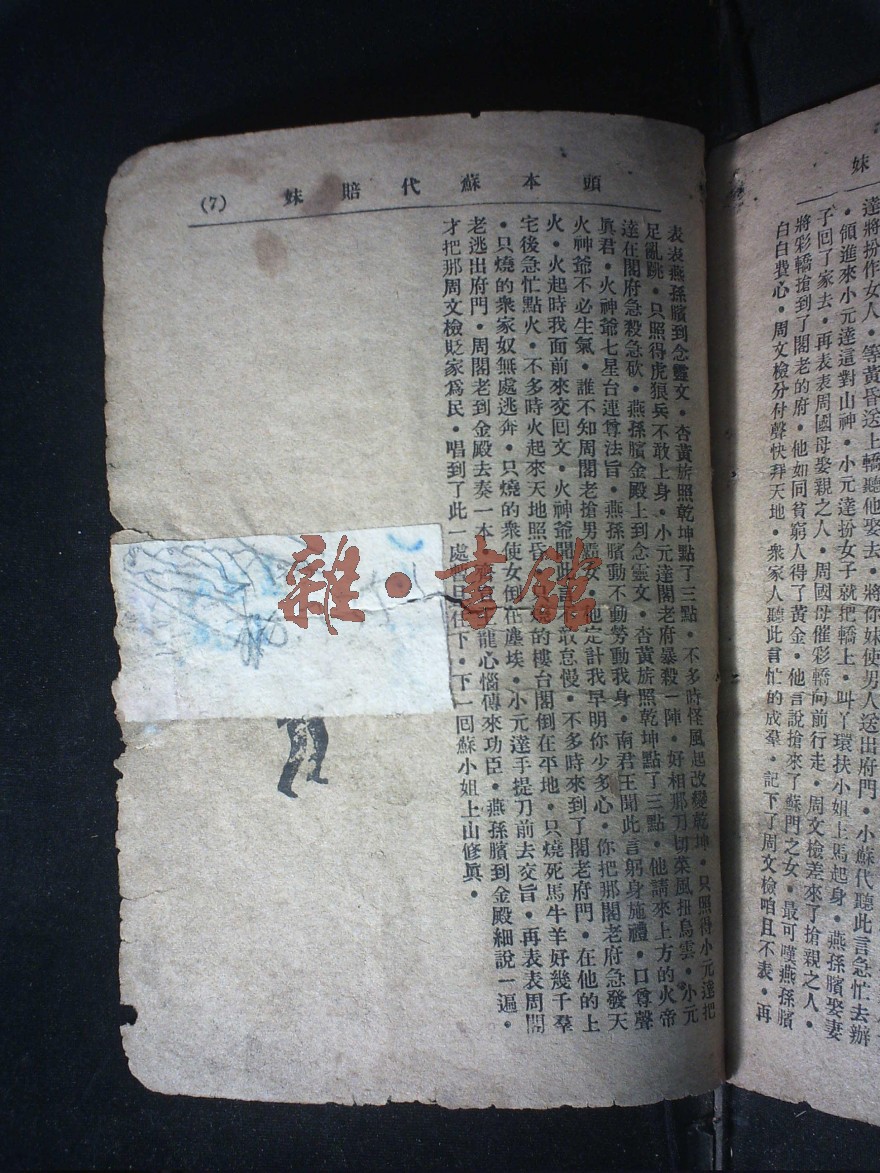 妹
達將扮作女人•等黃昏送上轎聽他娶去•將你妹使男人送出府門•小蘇代聽此言急忙去辦
•領進來小元達這對山神•小元達扮女子就把轎上•叫丫環扶小姐上馬起身•燕孫臏娶妻
子回了家去•再表表周國母娶親之人•周國母催彩轎向前行走•周文檢差來了搶親之人•
將彩轎搶到了閣老的府•他如同貧窮人得了黃金•他言說搶來了蘇門之女•最可嘆燕孫臏
白白費心•周文檢分付聲快拜天地•衆家人聽此言忙的成羣•記下了周文檢咱且不表•再
頭本蘇代賠妹 (7)
表表燕孫臏到念靈文•杏黃旂照乾坤點了三點•不多時怪風起改變乾坤•只照得小元達把
足亂跳•只照得虎狼兵不敢上身•小元達閣老府暴殺一陣•好相那刀切菜風扭烏雲•小元
達在閣府急殺急砍•燕孫臏金殿上到念灵文•杏黃旂照乾坤點了三點•他請來上方的火帝
眞君•火神爺七星台連尊法旨•燕孫臏動不動勞動我身•南君王聞此言躬身施禮•口尊聲
火神爺不必生氣•誰不知周閣老搶男霸女•他定計我早明你少多心•你把那閣老府急發天
火•火起時我面前來交回文•火神爺聞此言不敢怠慢•不多時來到了閣老府門•在他的上
宅後急忙點火•不多時火起來天地照昏•只燒的樓台閣倒在平地•只燒死馬牛羊好幾千羣
•只燒的衆家奴無處逃奔•只燒的衆使女倒在塵埃•小元達手提刀前去交旨•再表表周閣
老逃出府門•周閣老到金殿去奏一本•龍心惱傳來功臣•燕孫臏到金殿細說一遍•
才把那周文檢貶家爲民•唱到了此一處暫且住下•下一回蘇小姐上山修眞•
雜•書館